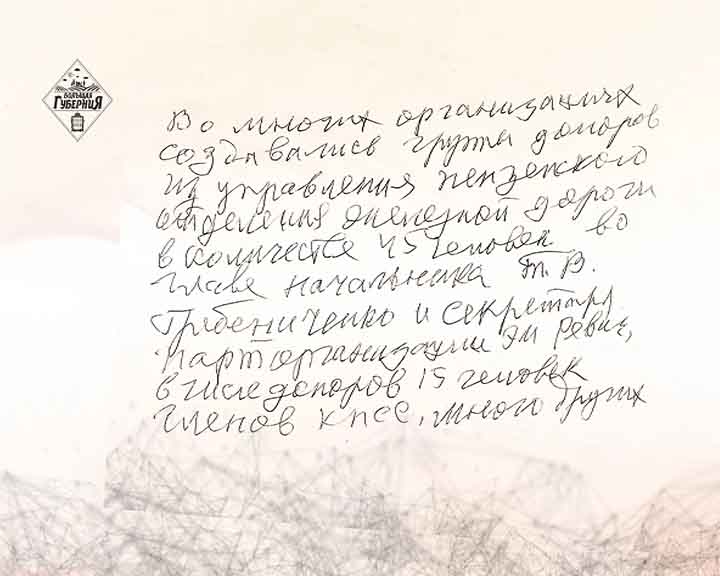 БОЛЬШАЯ
ГУБЕРНИЯ
Во многих организациях
создавались группы доноров
из управления пензенского
отделения железной дороги
в количестве 45 человек во
главе начальника Т. В.
Грабениченко и секретаря
парторганизации Эм Ревич,
в числе доноров 15 человек
членов КПСС, много других